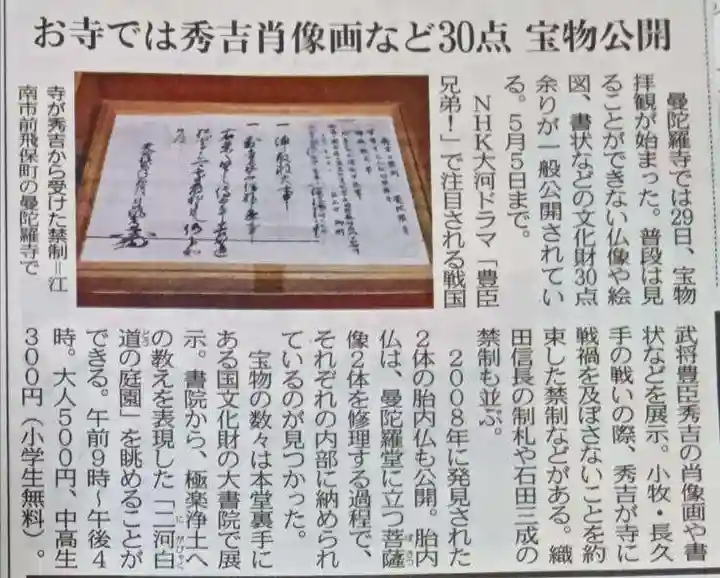 お寺では秀吉肖像画など30点 宝物公開
曼陀羅寺では29日、宝物
拝観が始まった。普段は見
ることができない仏像や絵
図、書状などの文化財30点
余りが一般公開されてい
る。5月5日まで。
NHK大河ドラマ「豊臣
兄弟！」で注目される戦国
武将豊臣秀吉の肖像画や書
状などを展示。小牧・長久
手の戦いの際、秀吉が寺に
戦禍を及ぼさないことを約
束した禁制などがある。織
田信長の制札や石田三成の
禁制も並ぶ。
2008年に発見された
2体の胎内仏も公開。胎内
仏は、曼陀羅堂に立つ菩薩
像2体を修理する過程で、
それぞれの内部に納められ
ているのが見つかった。
宝物の数々は本堂裏手に
ある国文化財の大書院で展
示。書院から、極楽浄土へ
の教えを表現した「二河白
道の庭園」を眺めることが
できる。午前9時～午後4
時。大人500円、中高生
300円（小学生無料）。
寺が秀吉から受けた禁制＝江
南市前飛保町の曼陀羅寺で